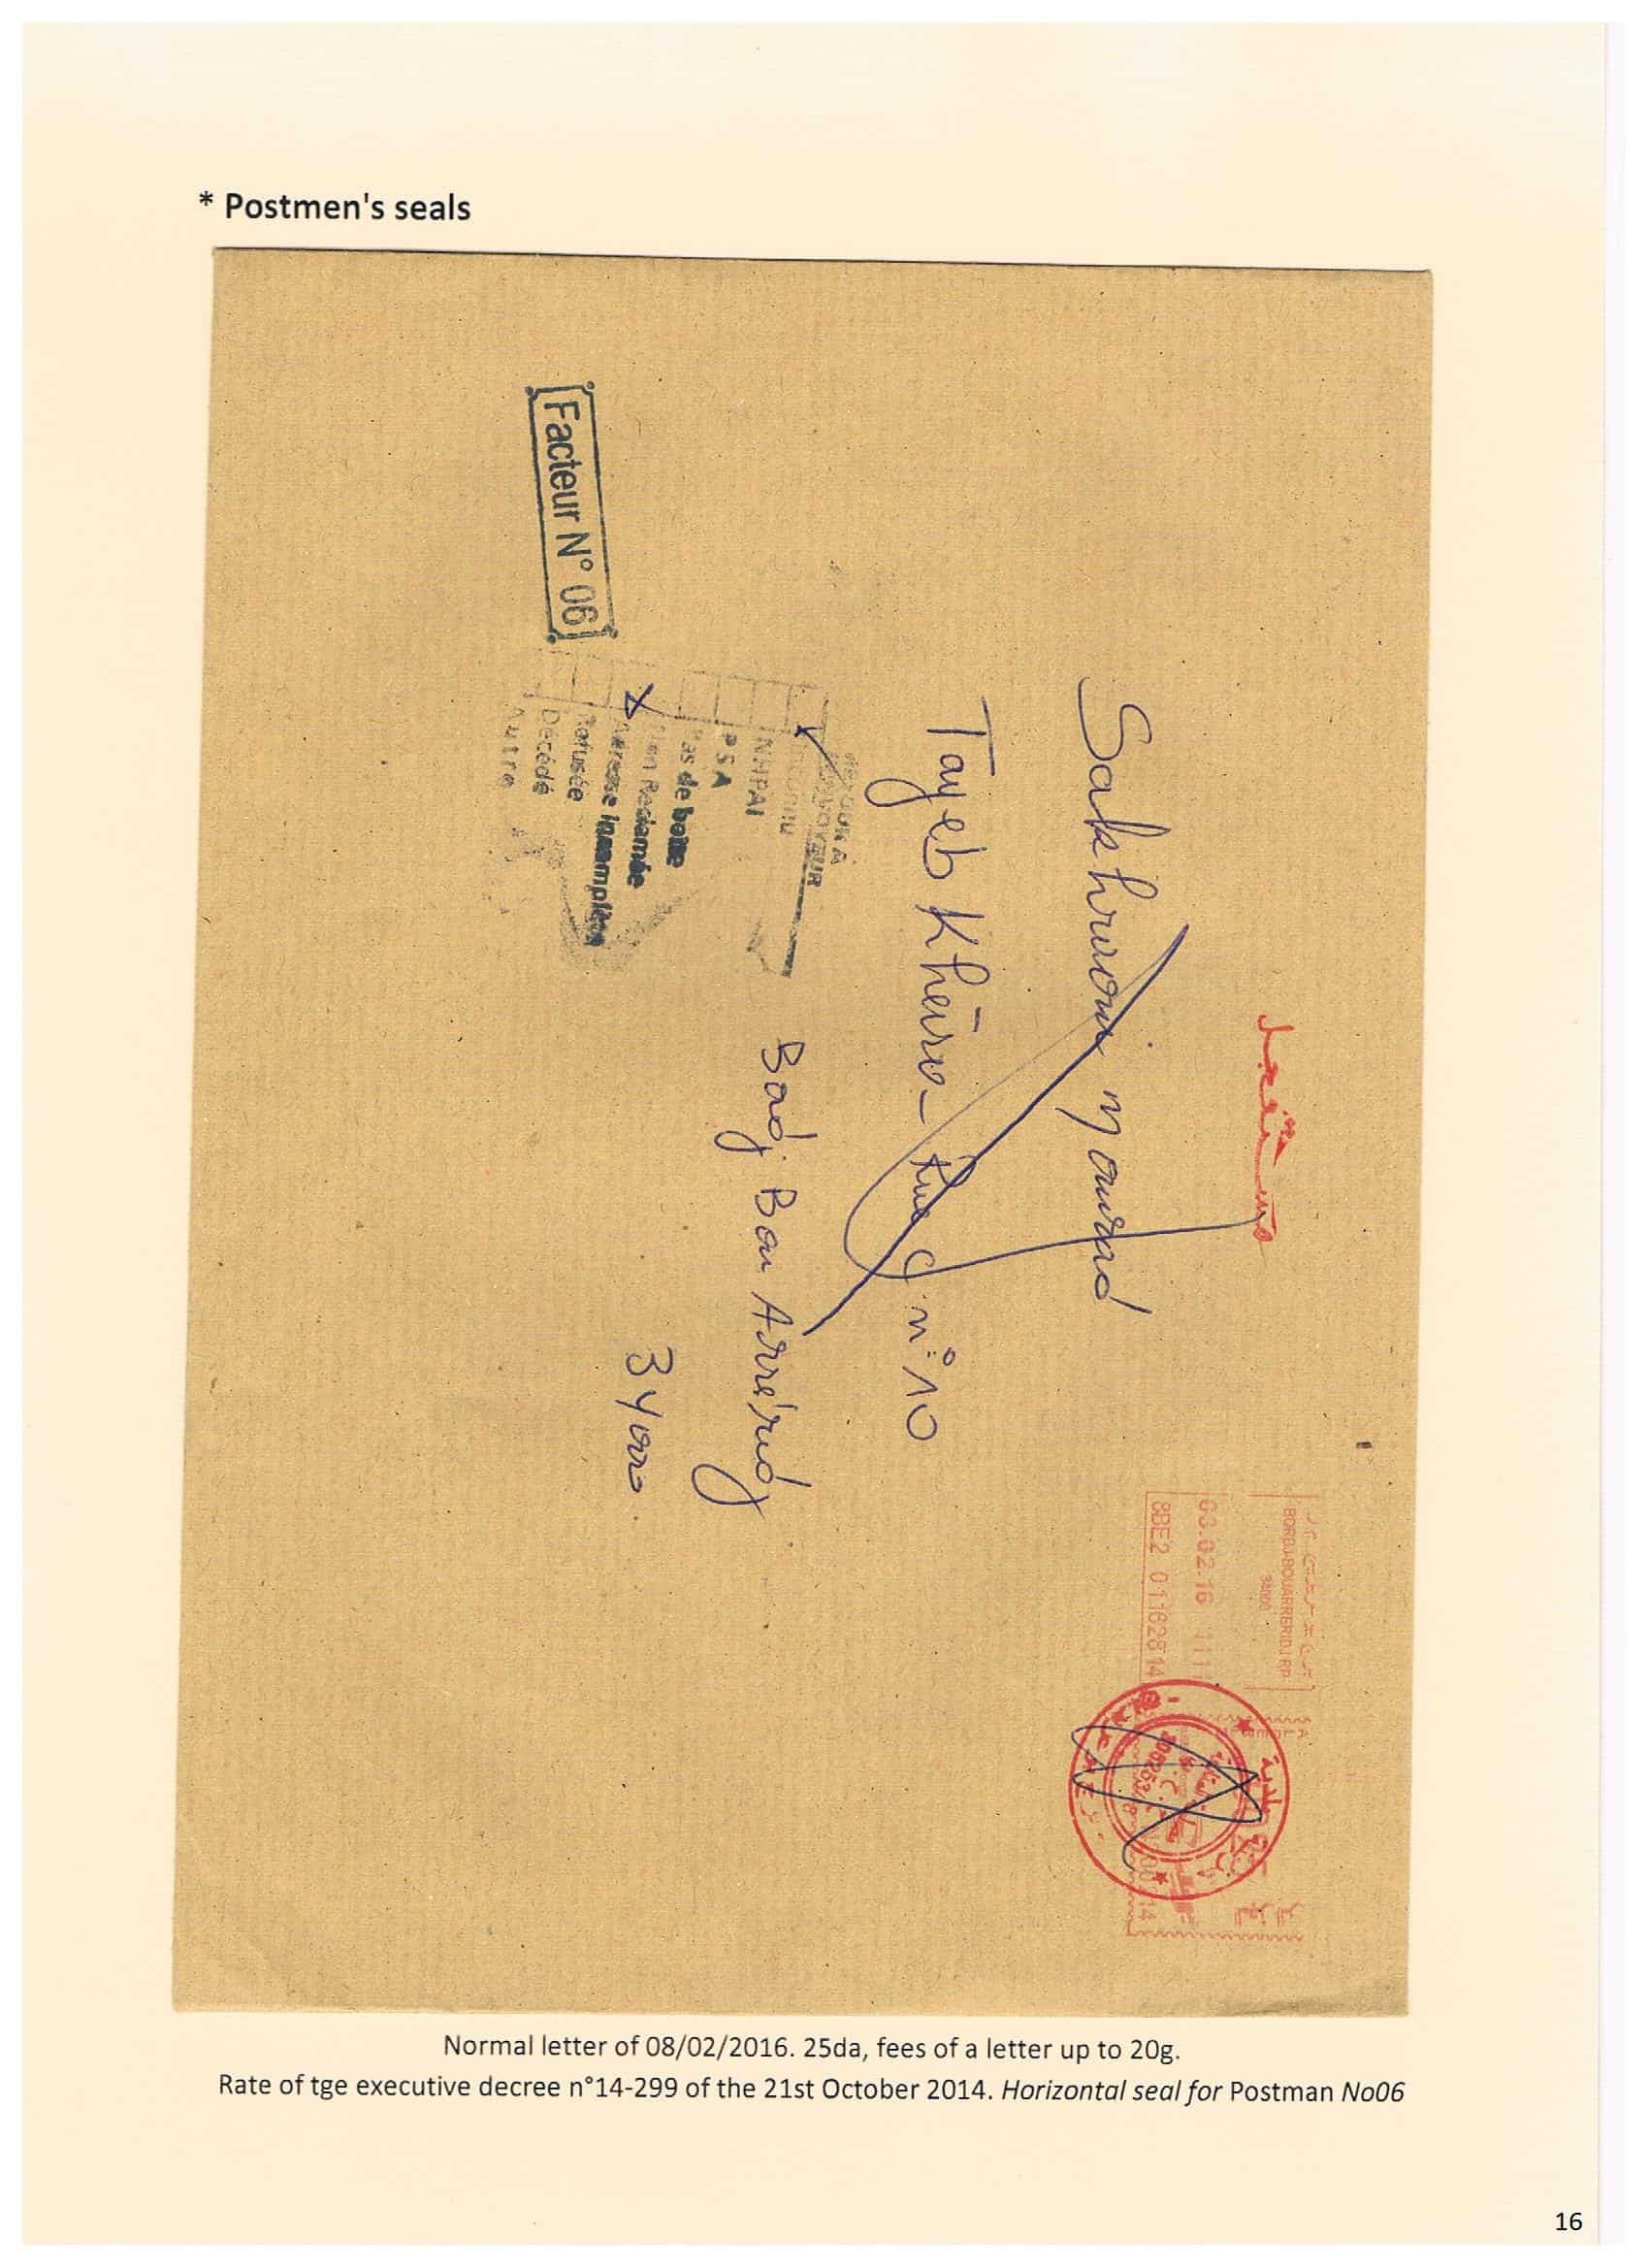 * Postmen's seals
BORDJ-BOUARRERIDJ RP
34000
03.02.16
8BE2 011628 14
Mourad
Tayeb Kheira - Rue g n° 10
Badj Bou Arréridj
34000
Facteur N° 06
RETOUR A
NHPAI
PSA
Pas de boite
Non Reclamée
Adresse Incomplète
Refusée
Décédé
Autre
Normal letter of 08/02/2016. 25da, fees of a letter up to 20g.
Rate of tge executive decree n°14-299 of the 21st October 2014. Horizontal seal for Postman No06
16